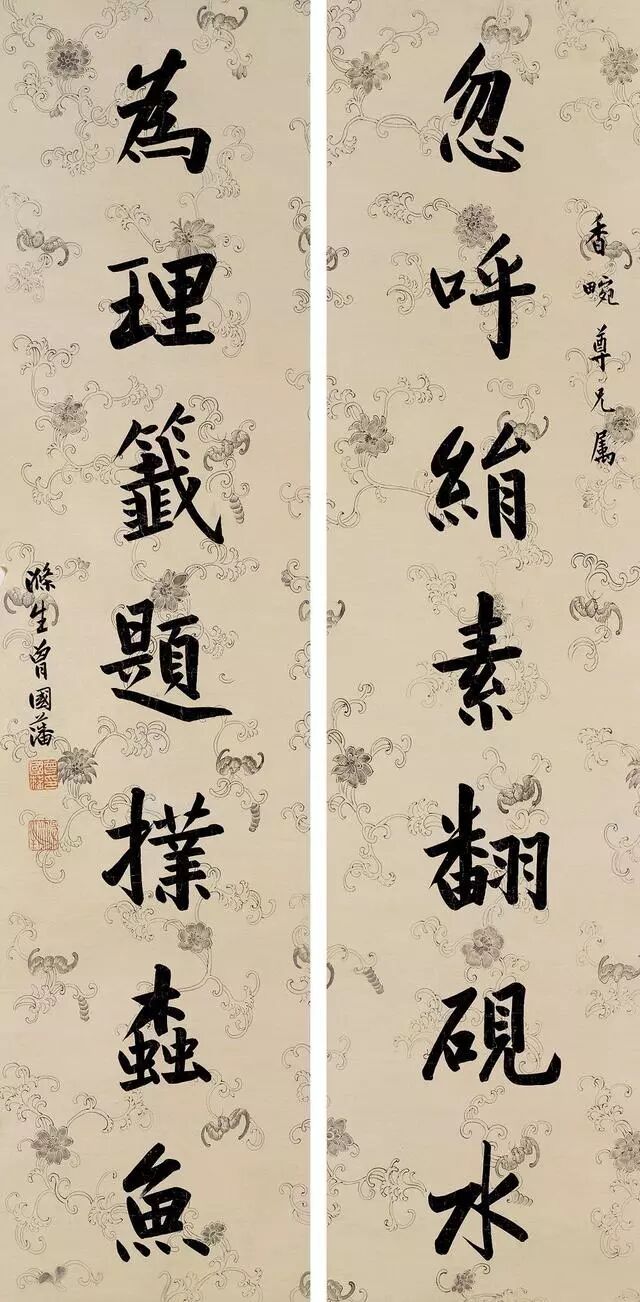 香畹尊兄属
忽呼絹素翻硯水
為理籤題撲螙魚
滌生曾國藩